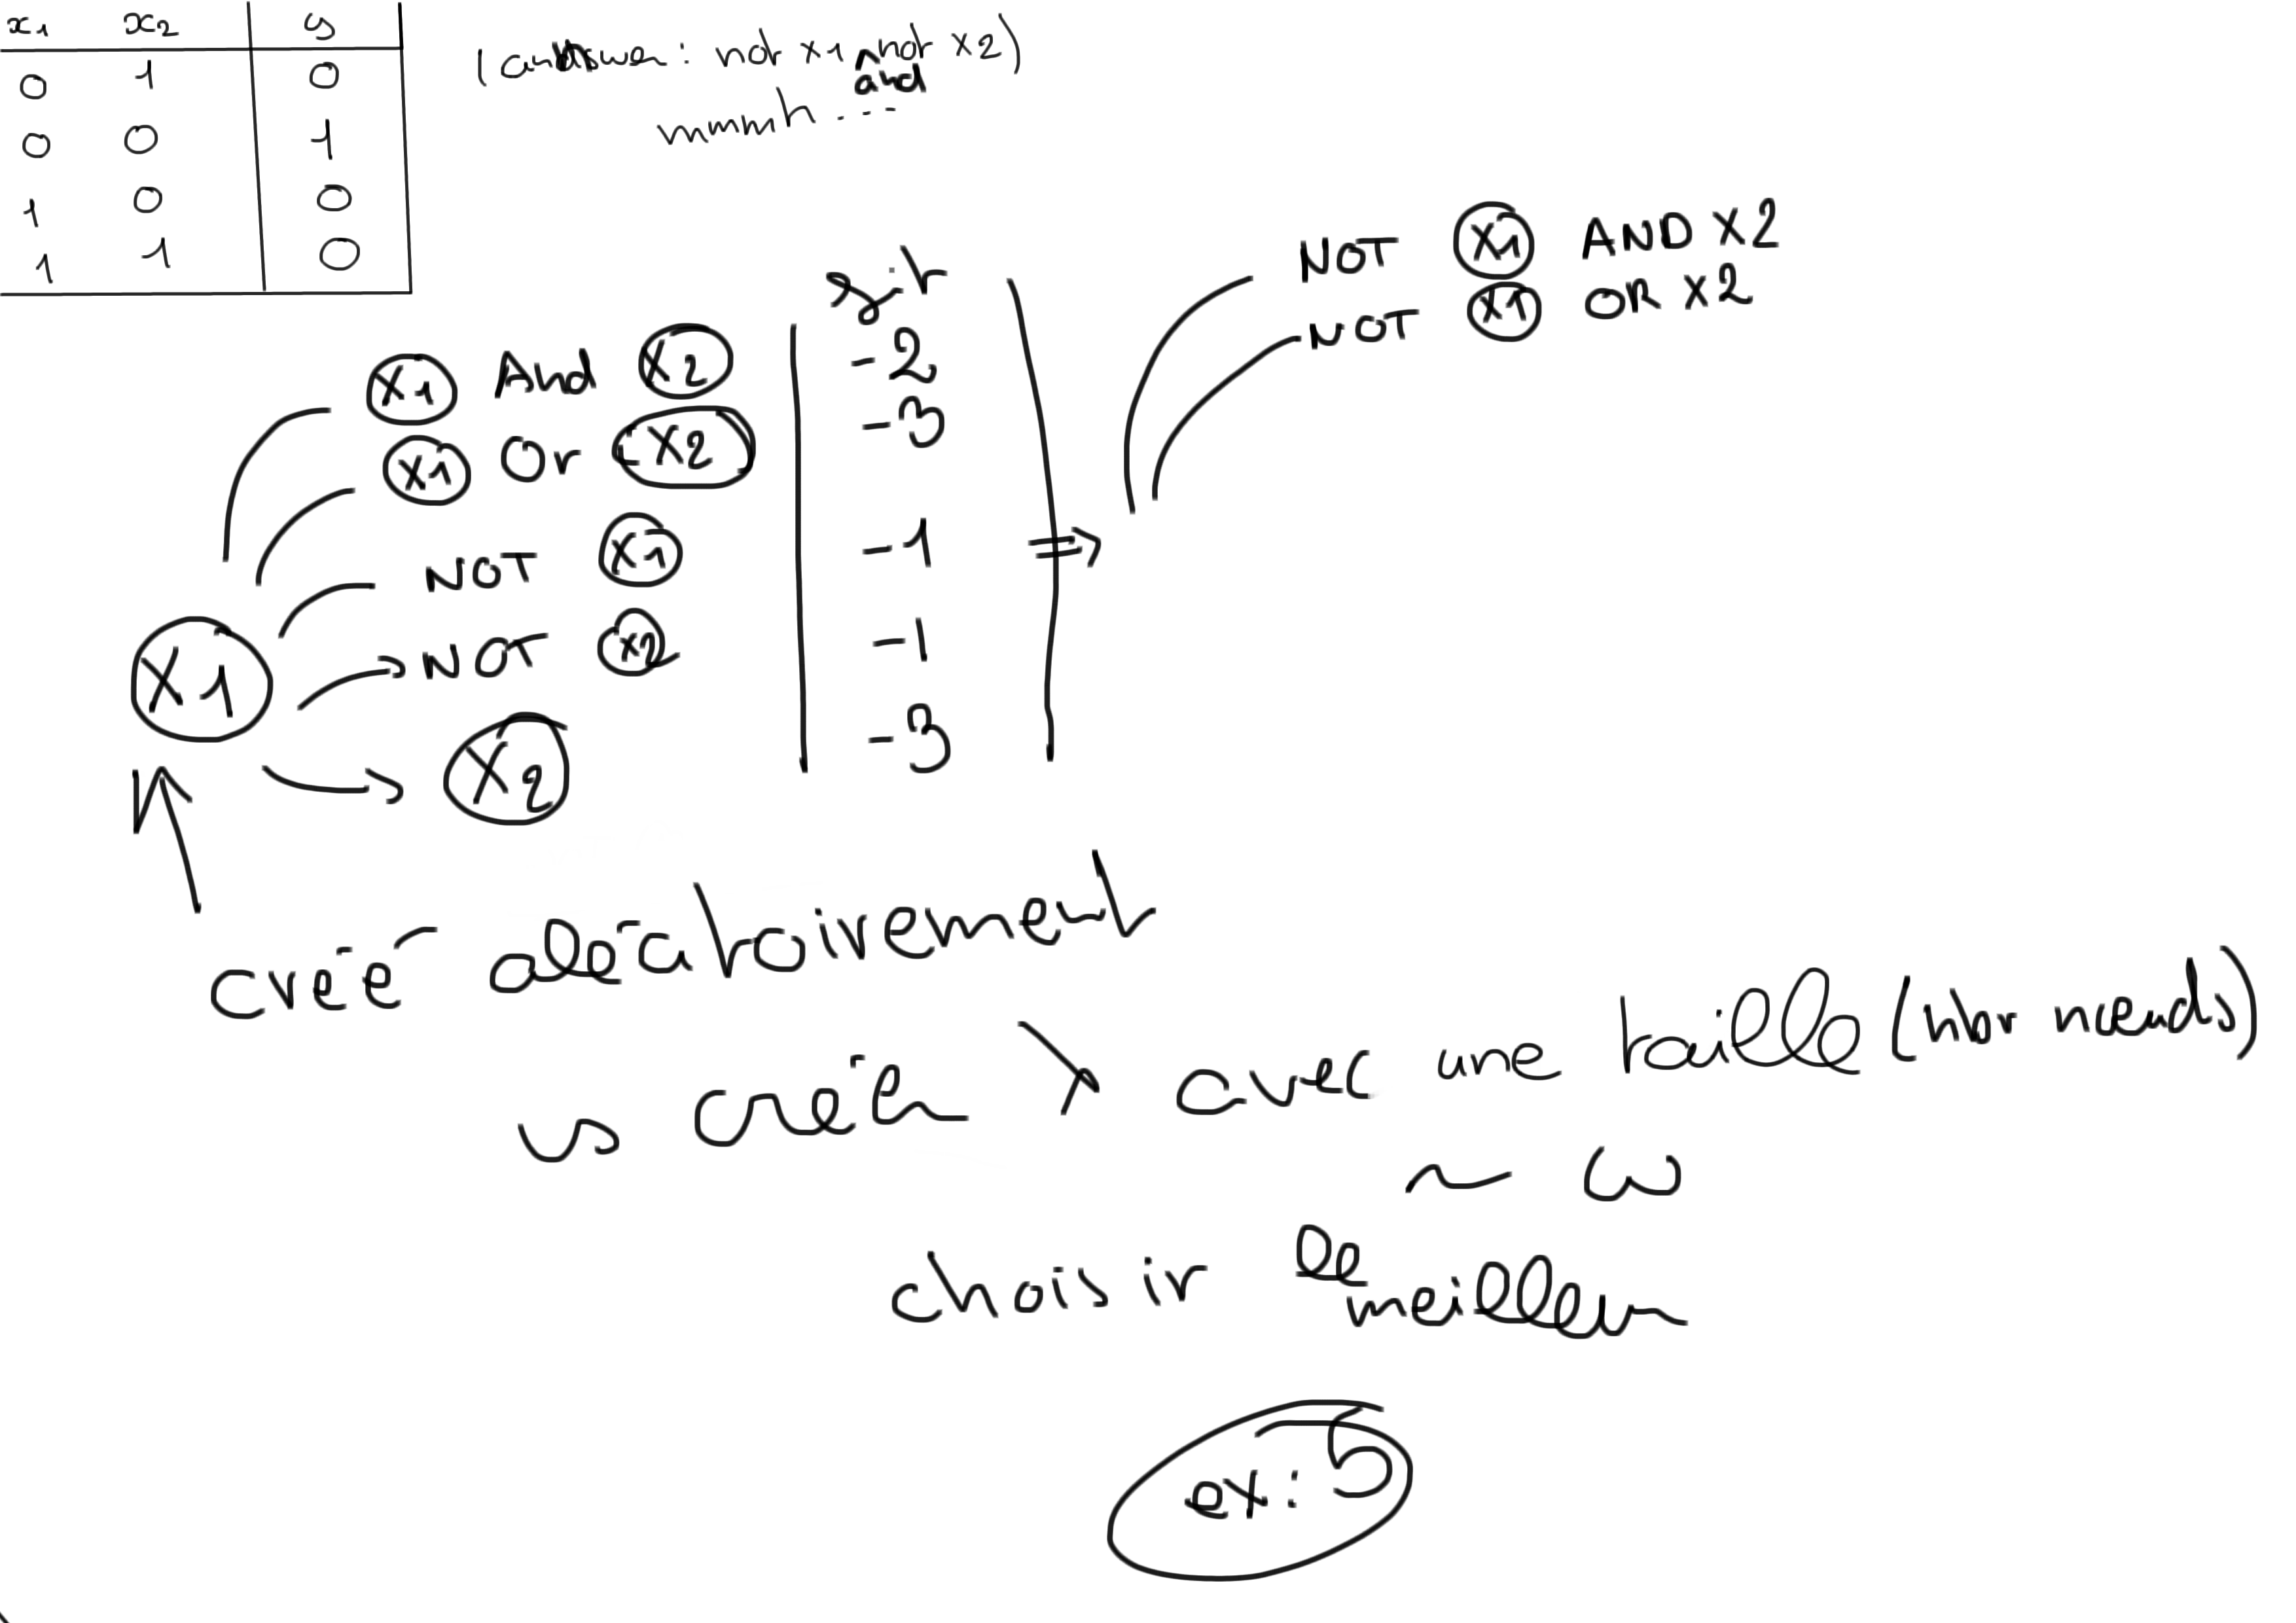 x1 x2 y
0 1 0
0 0 1
1 0 0
1 1 0
(answer: not x1 and not x2)
mmmh...
fit
X1 And X2 -2
X1 Or X2 -3
NOT X1 -1
NOT X2 -1
X1
X2 -3
=>
NOT X1 AND X2
NOT X1 OR X2
créé aléatoirement
créer λ avec une taille (nbr nœuds)
~ ω
choisir le meilleur
ex: 5